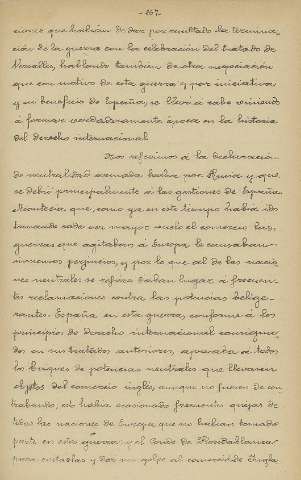 - 167 -
ciones que habían de dar por resultado la termina-
ción de la guerra con la celebración del tratado de
Versalles, hablando también de otra negociación
que con motivo de esta guerra y por iniciativa
y en beneficio de España, se llevó a cabo viniendo
á formar verdaderamente época en la historia
del derecho internacional
Nos referimos á la declaración
de neutralidad armada hecha por Rusia y que
se debió principalmente á las gestiones de España
Acontecía que, como ya en este tiempo había ido
tomando cada vez mayor vuelo el comercio las
guerras que agitaban á Europa le causaban
inmensos perjuicios, y por lo que al de las nacio
nes neutrales se refiere daban lugar á frecuen
tes reclamaciones contra las potencias belige-
rantes. España en esta guerra, conforme á los
principios de Derecho internacional consigna-
dos en sus tratados anteriores, apresaba á todos
los buques de potencias neutrales que llevaran
objetos del comercio inglés, aunque no fueran de con
trabando, esto había ocasionado frecuentes quejas de
las naciones de Europa que no habían tomado
parte en esta guerra y el Conde de Floridablanca
para evitarlas y dar un golpe al comercio de Ingla